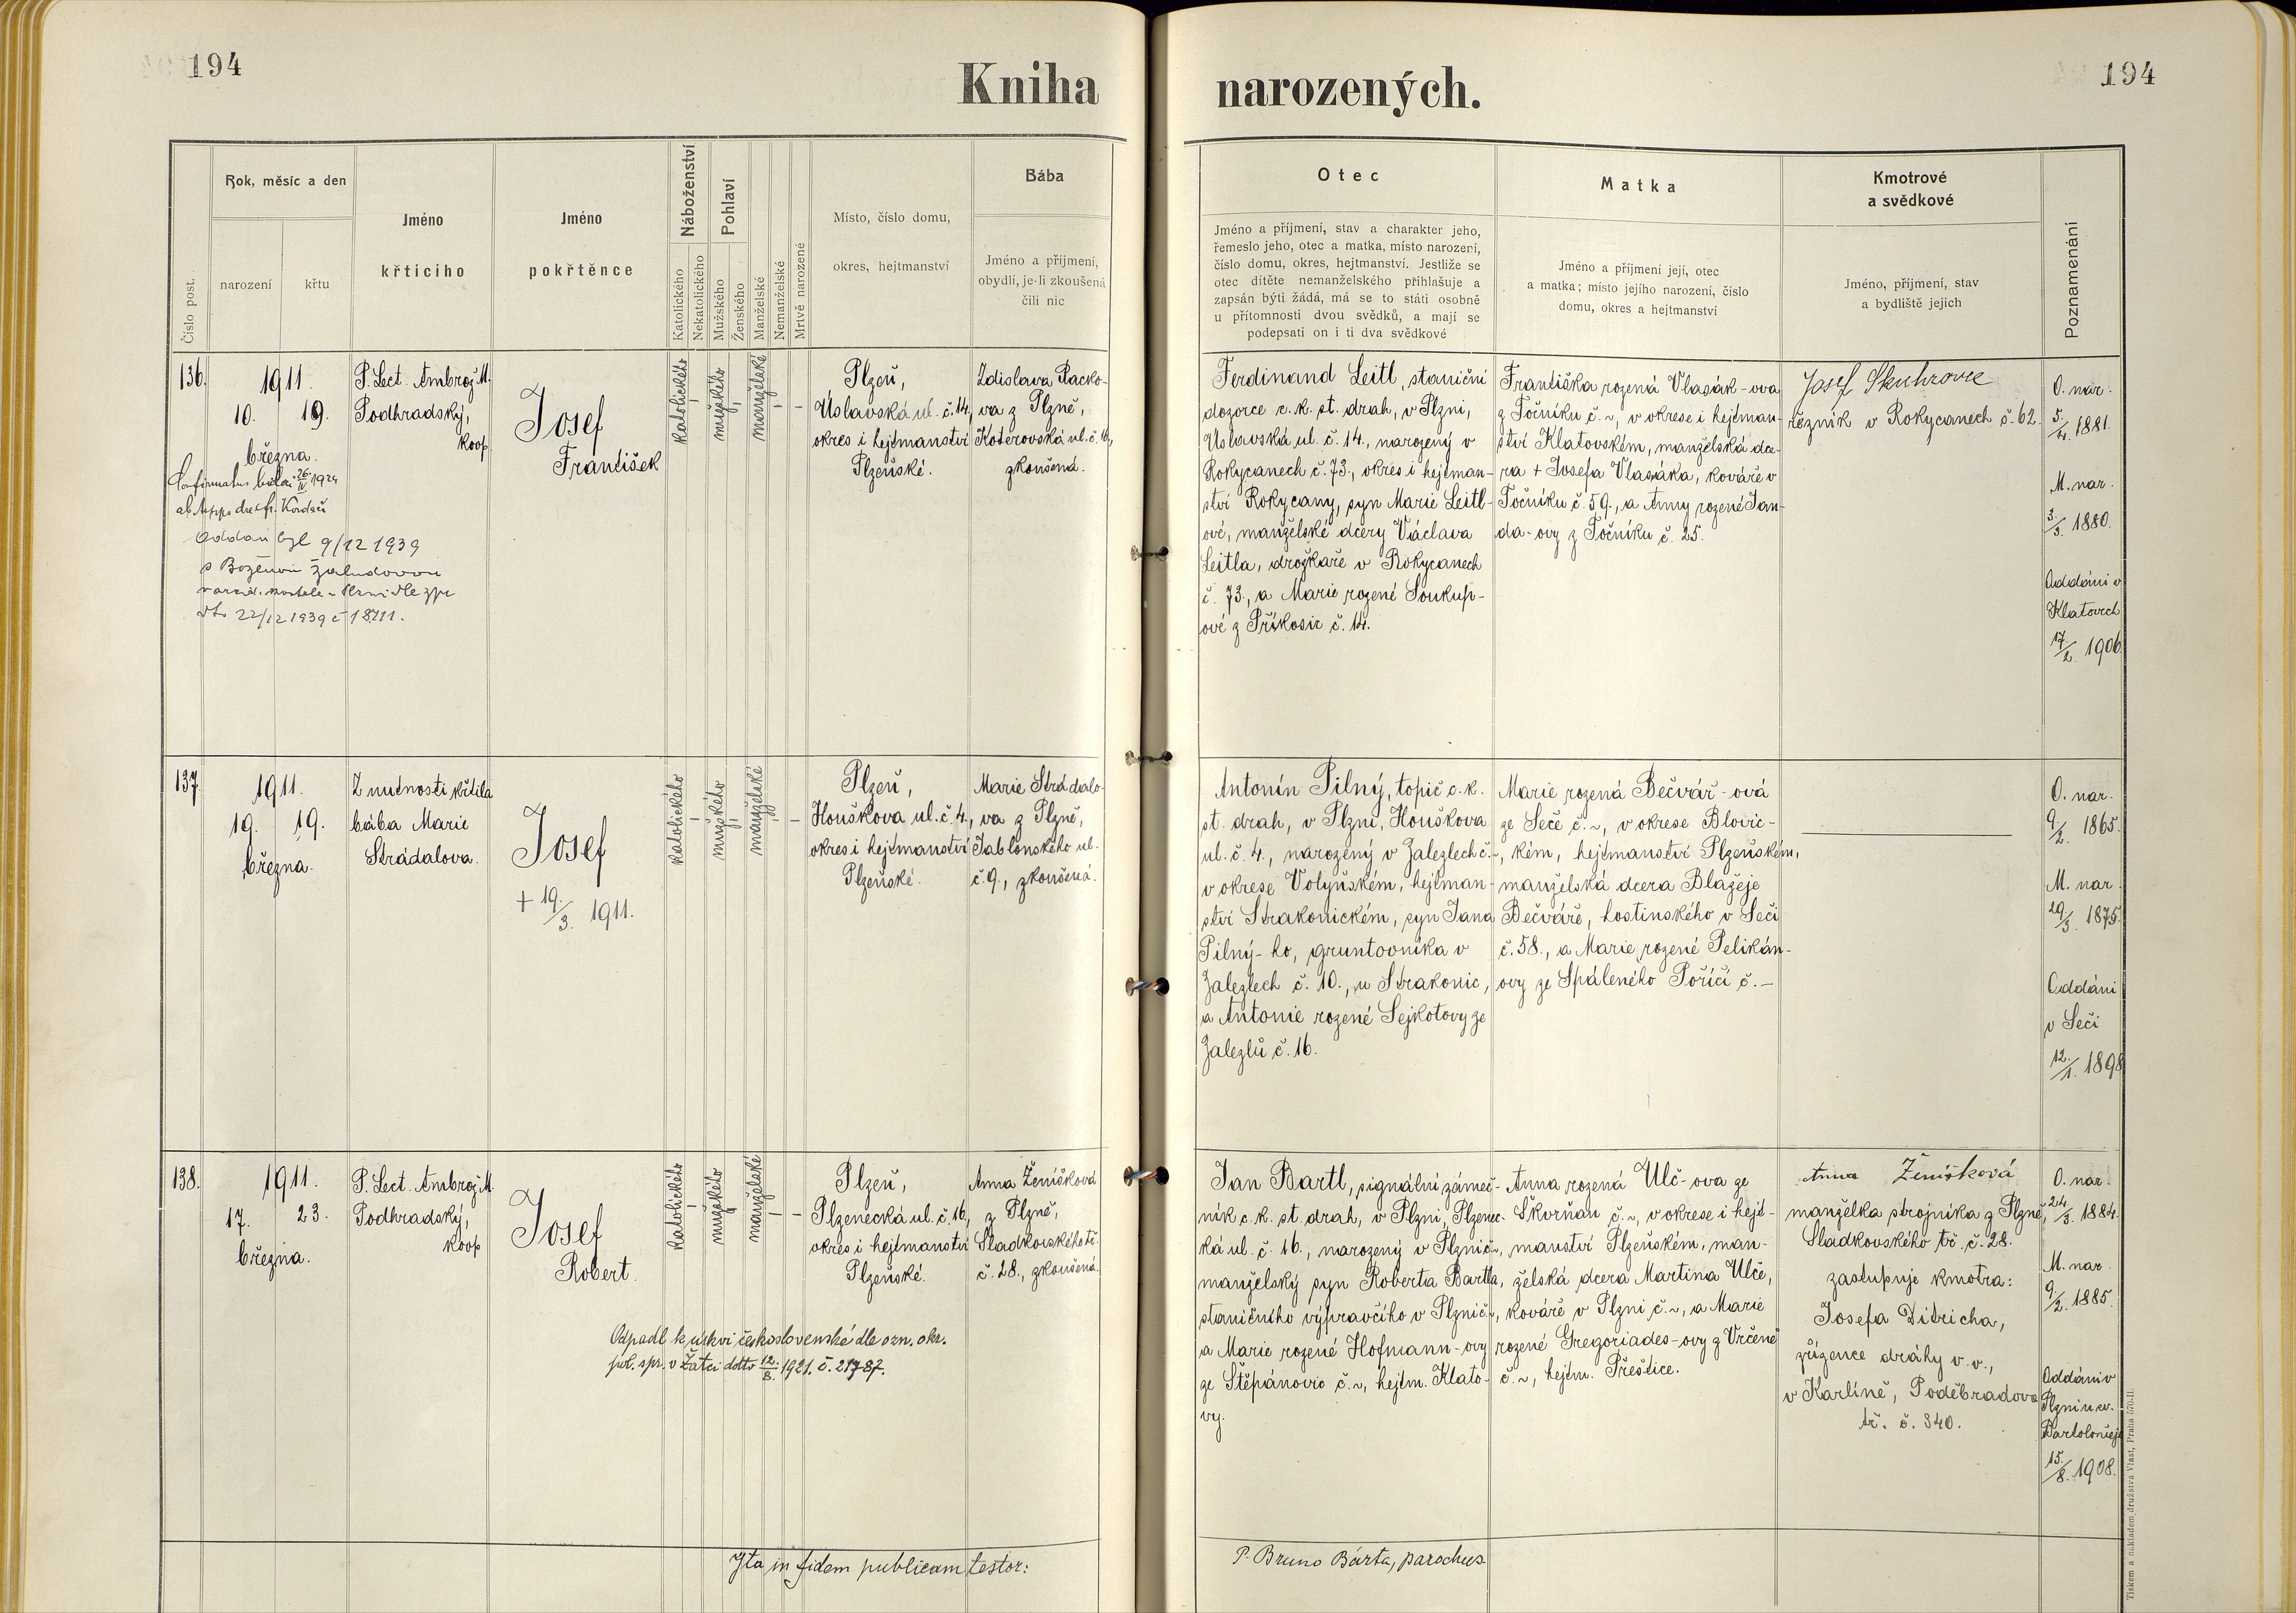 194
Kniha
narozených.
194
Číslo post.
Rok, měsíc a den
narození
křtu
Jméno
křticího
Jméno
pokřtěnce
Náboženství
Katolického
Nekatolického
Pohlaví
Mužského
Ženského
Manželské
Nemanželské
Mrtvě narozené
Místo, číslo domu,
okres, hejtmanství
Bába
Jméno a příjmení,
obydlí, je-li zkoušená
čili nic
Otec
Jméno a příjmení, stav a charakter jeho,
řemeslo jeho, otec a matka, místo narození,
číslo domu, okres, hejtmanství. Jestliže se
otec dítěte nemanželského přihlašuje a
zapsán býti žádá, má se to státi osobně
u přítomnosti dvou svědků, a mají se
podepsati on i ti dva svědkové
Matka
Jméno a příjmení její, otec
a matka; místo jejího narození, číslo
domu, okres a hejtmanství
Kmotrové
a svědkové
Jméno, příjmení, stav
a bydliště jejich
Poznamenání
136.
1911.
10. 19.
března.
Confirmatus 26/IV 1924
Oddán byl 9/12 1939
s Boženou Žaludovou
dto 22/12 1939 č 18711.
P. Lect. Ambrož M.
Podhradský,
koop
Josef
František
katolického
-
mužského
-
manželské
-
-
Plzeň,
Úslavská ul. č. 14,
okres i hejtmanství
Plzeňské.
Zdislava Racko-
va z Plzně,
Koterovská ul. č. 16,
zkoušená.
Ferdinand Leitl, staniční
dozorce c. k. st. drah, v Plzni,
Úslavská ul. č. 14., narozený v
Rokycanech č. 73., okres i hejtman-
ství Rokycany, syn Marie Leitl-
ové, manželské dcery Václava
Leitla, drožkaře v Rokycanech
č. 73., a Marie rozené Soukup-
ové z Příkosic č. 14.
Františka rozená Vlasák-ova
z Točníku č. ~, v okrese i hejtman-
ství Klatovském, manželská dce-
ra + Josefa Vlasáka, kováře v
Točníku č. 59., a Anny rozené Jan-
da-ovy z Točníku č. 25.
Josef Skuhrovec
řezník v Rokycanech č. 62.
O. nar.
5./4. 1881.
M. nar.
3./3. 1880.
Oddáni v
Klatovech
17./2. 1906.
137
1911.
19. 19.
března.
Z nutnosti křtila
bába Marie
Strádalova.
Josef
+ 19./3. 1911.
katolického
-
mužského
-
manželské
-
-
Plzeň,
Houškova ul. č. 4.,
okres i hejtmanství
Plzeňské.
Marie Strádalo-
va z Plzně,
Jablonského ul.
č. 9., zkoušená.
Antonín Pilný, topič c. k.
st. drah, v Plzni, Houškova
ul. č. 4., narozený v Zalezlech č. ~,
v okrese Volyňském, hejtman-
ství Strakonickém, syn Jana
Pilný-ho, gruntovníka v
Zalezlech č. 10., u Strakonic,
a Antonie rozené Sejkotovy ze
Zalezlů č. 16.
Marie rozená Bečvář-ová
ze Seče č. ~, v okrese Blovic-
kém, hejtmanství Plzeňském,
manželská dcera Blažeje
Bečváře, hostinského v Seči
č. 58., a Marie rozené Pelikán-
ovy ze Spáleného Poříčí č. –
O. nar.
9./2. 1865.
M. nar.
29./3. 1875.
Oddáni
v Seči
12./1. 1898
138.
1911.
17. 23.
března.
P. Lect. Ambrož M.
Podhradský,
koop
Josef
Robert.
katolického
-
mužského
-
manželské
-
-
Odpadl k církvi československé dle ozn. okr.
pol. spr. v Žatci dotto 12./8. 1921. č. 21787.
Plzeň,
Plzenecká ul. č. 16,
okres i hejtmanství
Plzeňské.
Anna Ženíšková
z Plzně,
Sladkovského tř.
č. 28., zkoušená.
Jan Bartl, signální zámeč-
ník c. k. st. drah, v Plzni, Plzenec-
ká ul. č. 16., narozený v Plzni č. ~,
manželský syn Roberta Bartla,
staničního výpravčího v Plzni č. ~,
a Marie rozené Hofmann-ovy
ze Štěpánovic č. ~, hejtm. Klato-
vy.
Anna rozená Ulč-ova ze
Skvrňan č. ~, v okrese i hejt-
manství Plzeňském, man-
želská dcera Martina Ulče,
kováře v Plzni č. ~, a Marie
rozené Gregoriades-ovy z Vrčeně
č. ~, hejtm. Přeštice.
Anna Ženíšková
manželka strojníka z Plzně,
Sladkovského tř. č. 28.
zastupuje kmotra:
Josefa Ditricha,
zřízence dráhy v. v.,
v Karlíně, Poděbradova
tř. č. 340.
O. nar.
24./3. 1884.
M. nar.
9./2. 1885.
Oddáni v
Plzni u sv.
Bartoloměje
15./8. 1908.
Ita in fidem publicam testor:
P. Bruno Bárta, parochus
Tiskem a nákladem družstva Vlast, Praha 570-II.